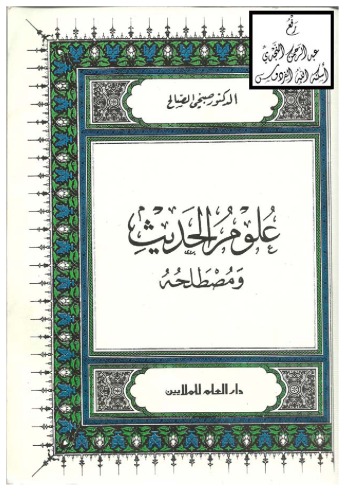 رفع
عبد الرحمن النجدي
أسكنه الله الفردوس
الدكتور صبحي الصالح
علوم الحديث
ومصطلحه
دار العلم للملايين